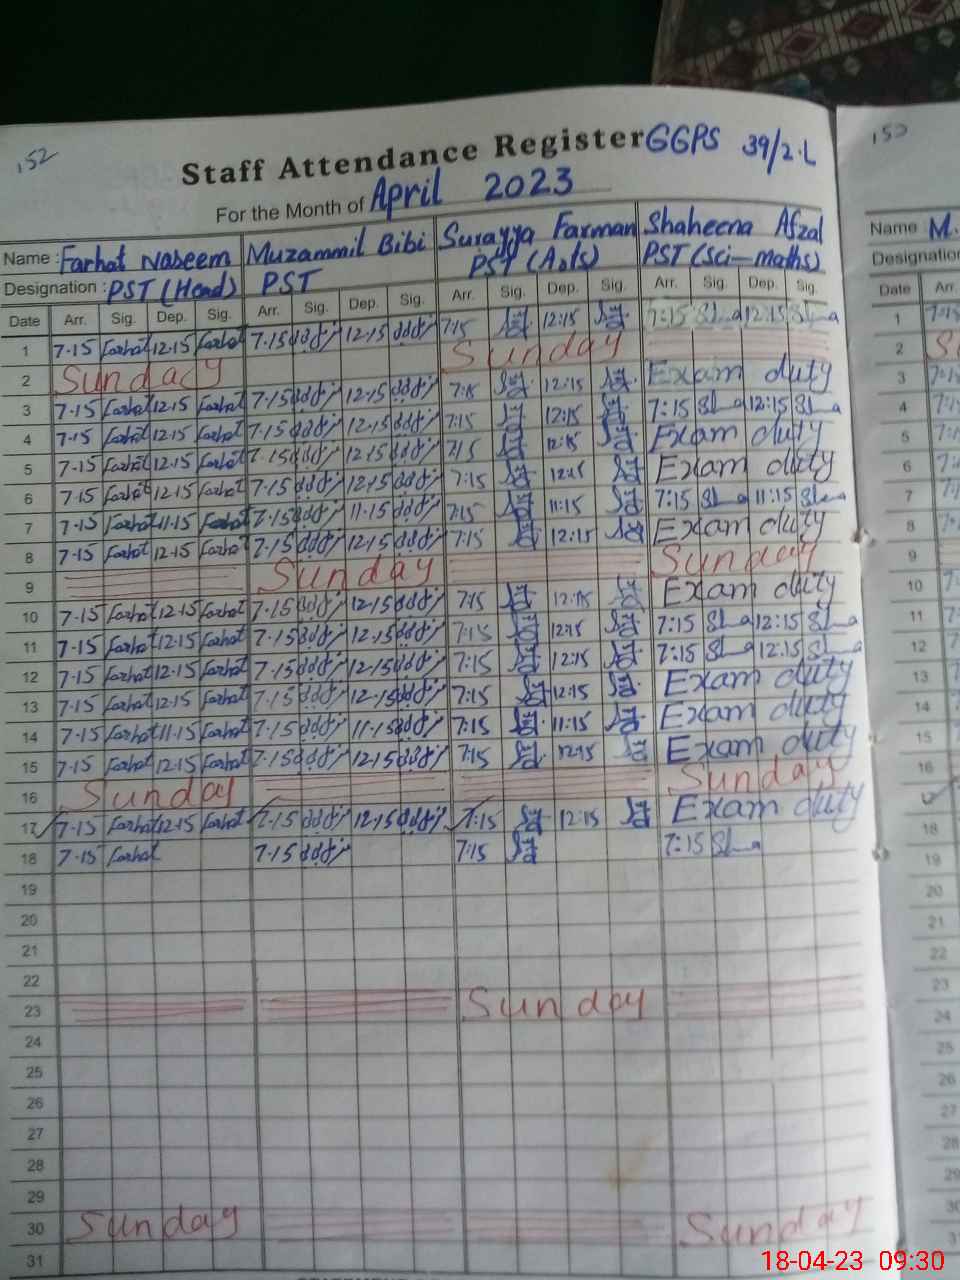 152
Staff Attendance Register GGPS 39/2.L
For the Month of April 2023
Name : Farhat Naseem Muzammil Bibi Surayya Farman Shaheena Afzal
Designation : PST (Head) PST PST (Arts) PST (Sci-maths)
Date Arr. Sig. Dep. Sig. Arr. Sig. Dep. Sig. Arr. Sig. Dep. Sig. Arr. Sig. Dep. Sig.
1 7-15 Farhat 12-15 Farhat 7-15 12-15 7:15 12:15 7:15 12:15
2 Sunday Sunday
3 7-15 Farhat 12-15 Farhat 7-15 12-15 7:15 12:15 Exam duty
4 7-15 Farhat 12-15 Farhat 7-15 12-15 7:15 12:15 7:15 12:15
5 7-15 Farhat 12-15 Farhat 7-15 12-15 7:15 12:15 Exam duty
6 7-15 Farhat 12-15 Farhat 7-15 12-15 7:15 12:15 Exam duty
7 7-15 Farhat 11-15 Farhat 7-15 11-15 7:15 11:15 7:15 11:15
8 7-15 Farhat 12-15 Farhat 7-15 12-15 7:15 12:15 Exam duty
9 Sunday Sunday
10 7-15 Farhat 12-15 Farhat 7-15 12-15 7:15 12:15 Exam duty
11 7-15 Farhat 12-15 Farhat 7-15 12-15 7:15 12:15 7:15 12:15
12 7-15 Farhat 12-15 Farhat 7-15 12-15 7:15 12:15 7:15 12:15
13 7-15 Farhat 12-15 Farhat 7-15 12-15 7:15 12:15 Exam duty
14 7-15 Farhat 11-15 Farhat 7-15 11-15 7:15 11:15 Exam duty
15 7-15 Farhat 12-15 Farhat 7-15 12-15 7:15 12:15 Exam duty
16 Sunday Sunday
17 7-15 Farhat 12-15 Farhat 7-15 12-15 7:15 12:15 Exam duty
18 7-15 Farhat 7-15 7:15 7:15
19
20
21
22
23 Sunday
24
25
26
27
28
29
30 Sunday Sunday
31
Name M.
Date Arr.
1
2
3
4
5
6
7
8
9
10
11
12
13
14
15
16
18
19
20
21
22
23
24
25
26
27
28
29
18-04-23 09:30